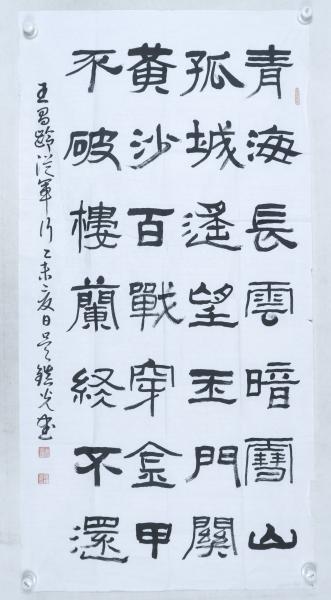 青海長雲暗雪山
孤城遥望玉門關
黃沙百戰穿金甲
不破樓蘭終不還
王昌齡從軍行乙未夏日吴鎮光書